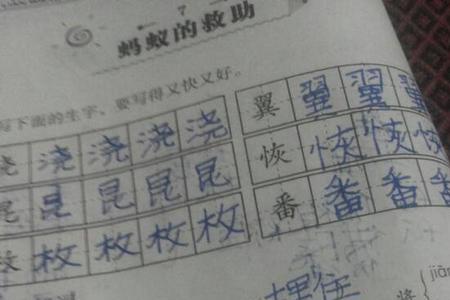 蚂蚁的救助
写下面的生字，要写得又快又好。
浇 浇 浇 浇 浇
昆 昆 昆 昆 昆
枚 枚 枚 枚 枚
翼 翼 翼 翼
恢 恢 恢 恢
番 番 番 番
将
jiān